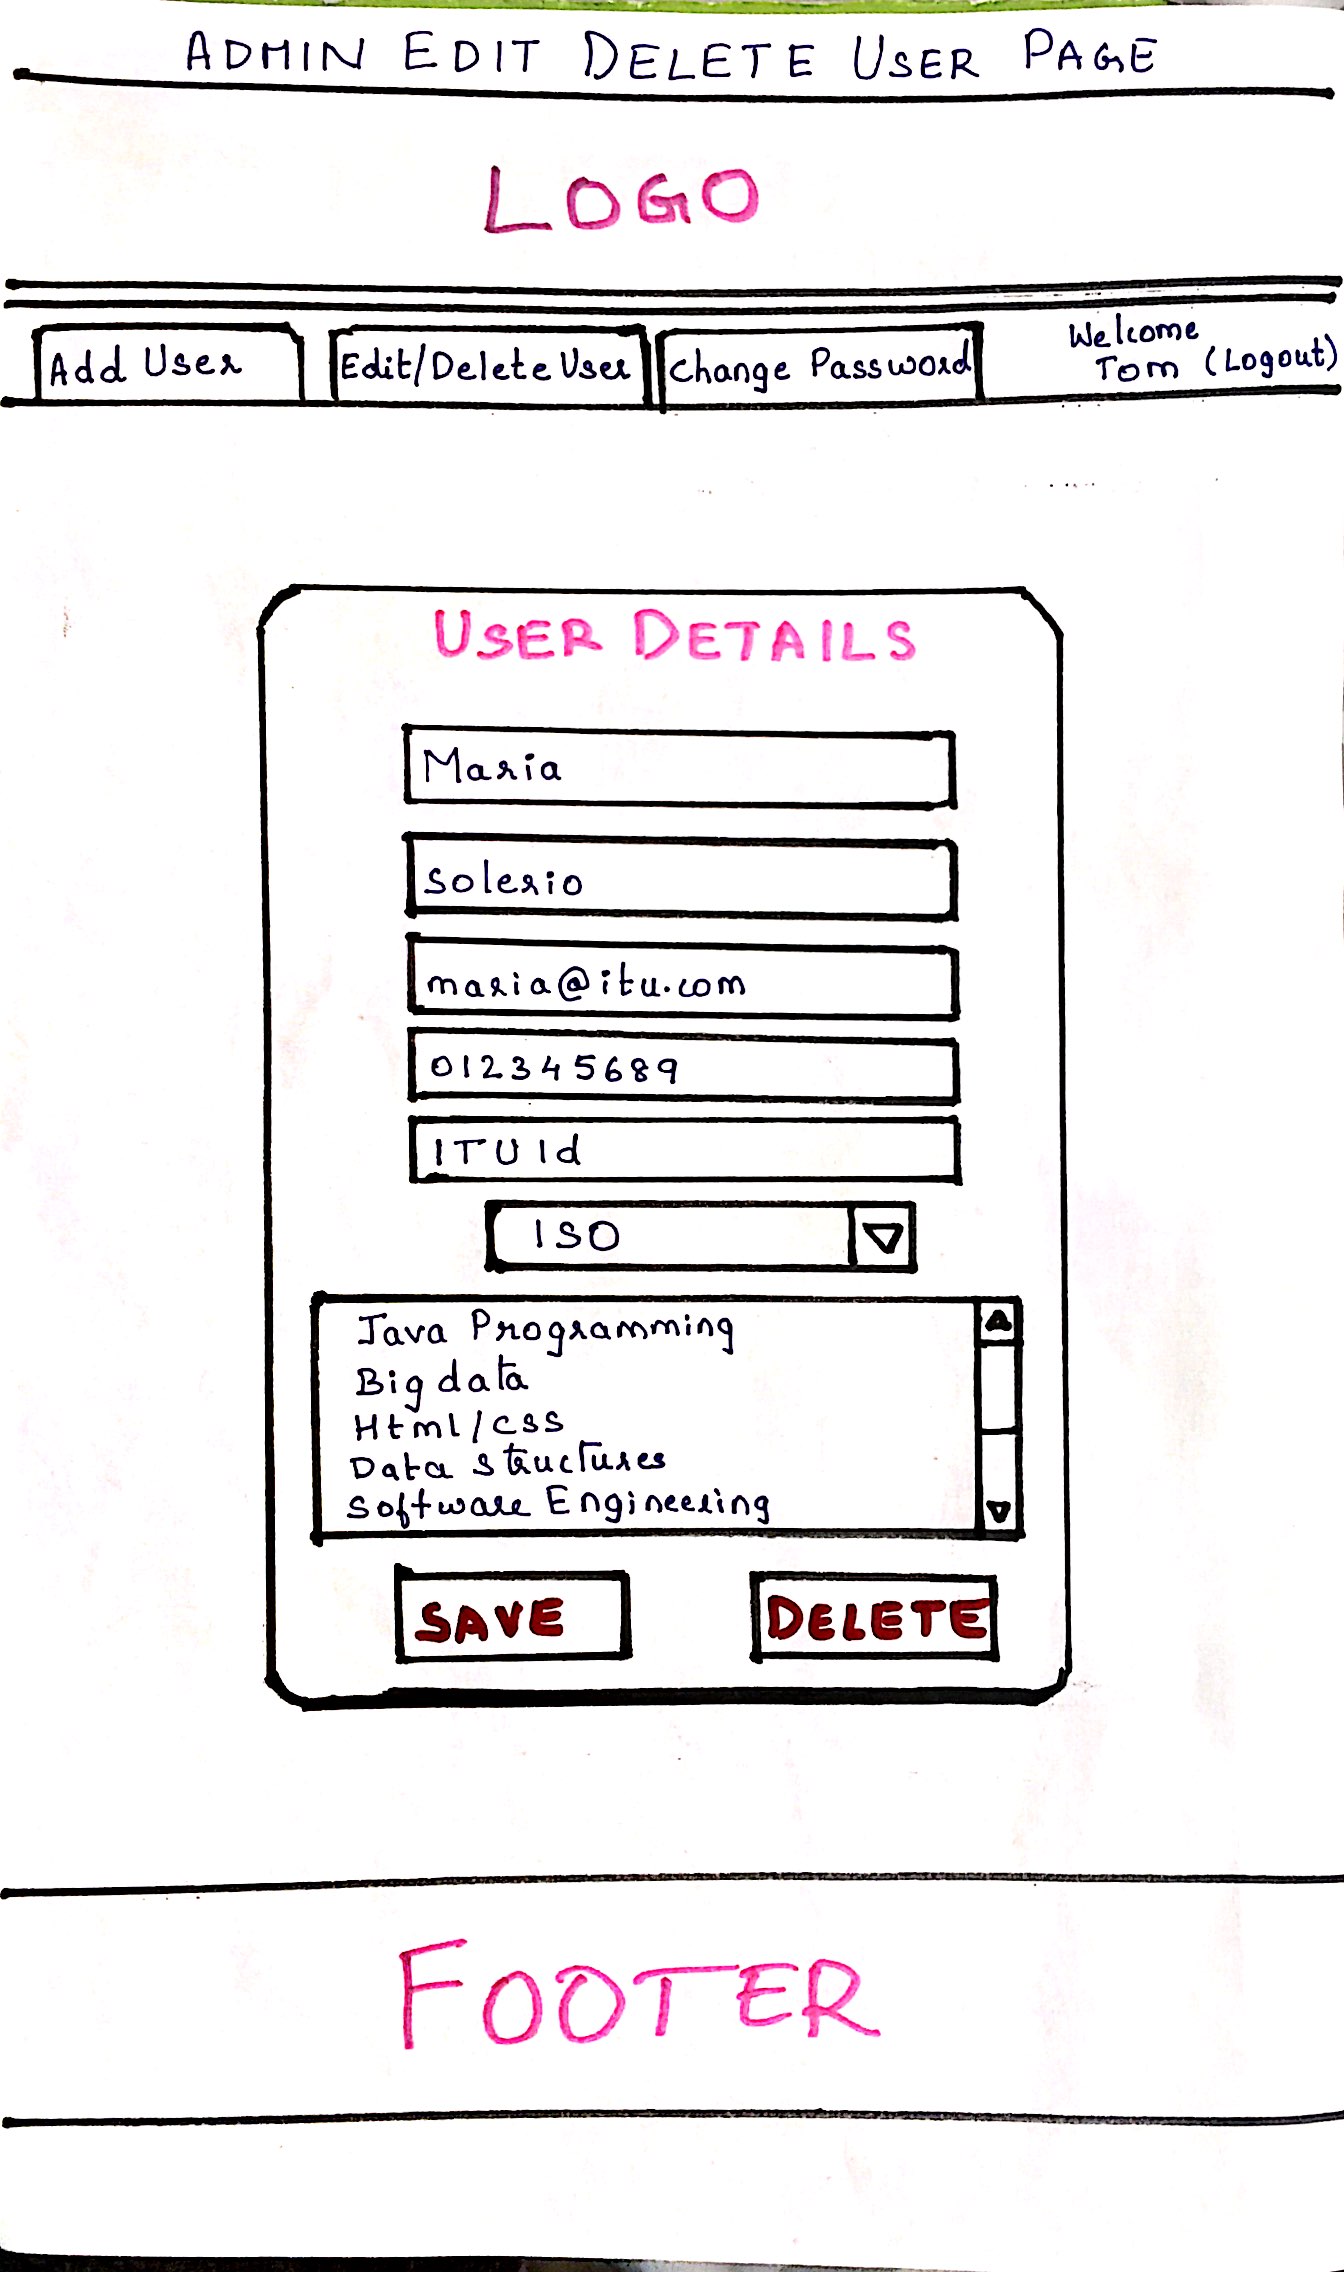 ADMIN EDIT DELETE USER PAGE
LOGO
Add User
Edit/Delete User
Change Password
Welcome
Tom (Logout)
USER DETAILS
Maria
Solerio
maria@itu.com
012345689
ITU Id
ISO
Java Programming
Big data
Html/css
Data structures
Software Engineering
SAVE
DELETE
FOOTER